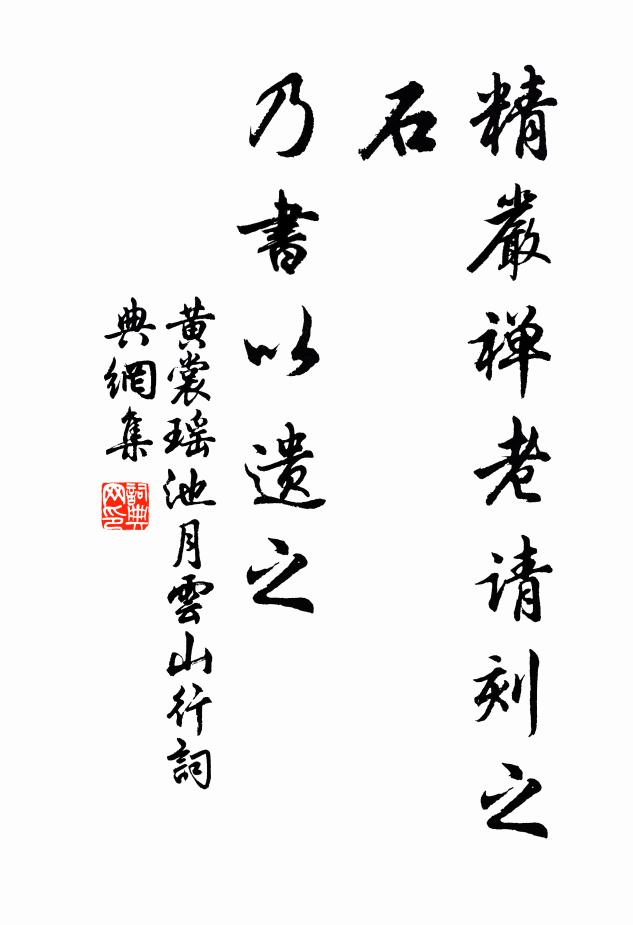 精嚴禅老请刻之
石
乃書以遗之
黄裳瑶池月雲山行詞
典網集
詞典
网印